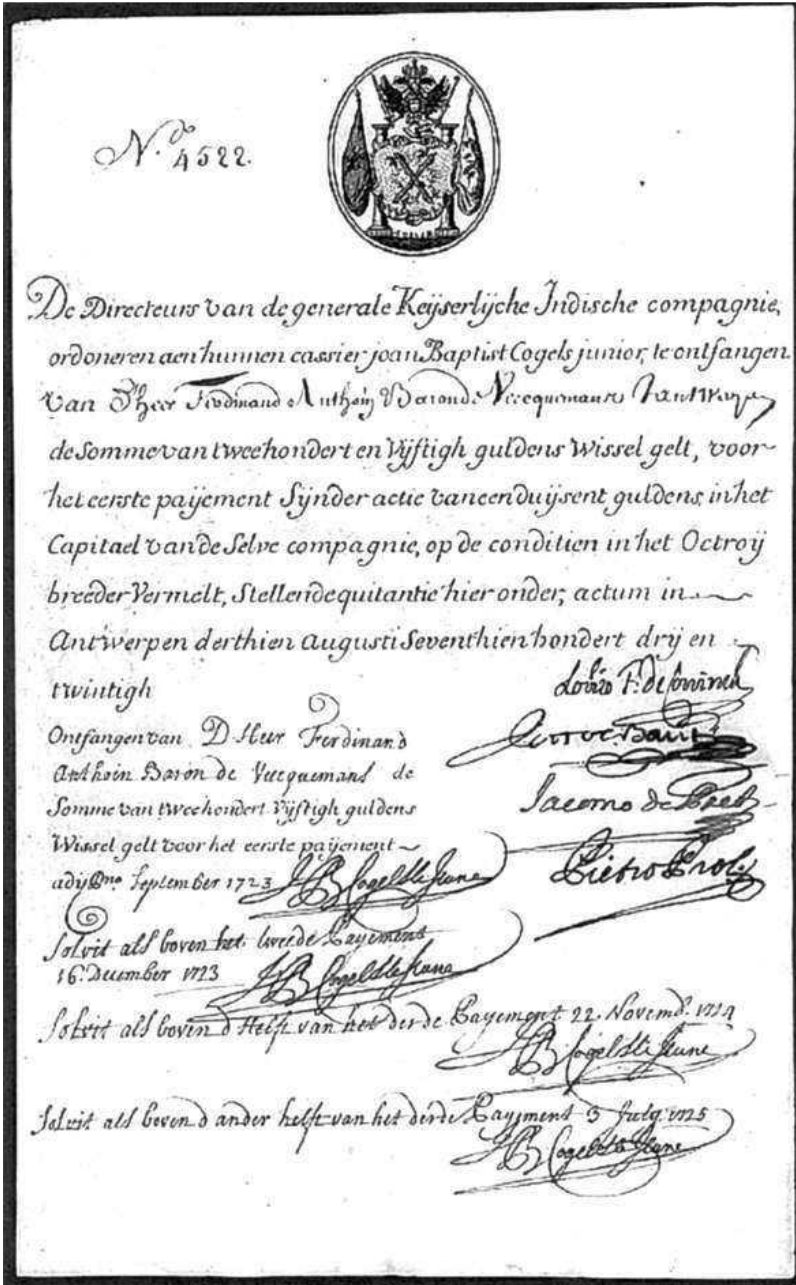 N.ᵈᵒ 4522.
De Directeurs van de generale Keÿserlÿche Indische compagnie,
ordoneren aen hunnen cassier joan Baptist Cogels junior, te ontfangen
van D'heer Ferdinand Anthoin Baron de Vecquemans
de Somme van tweehondert en Vÿftigh guldens Wissel gelt, voor
het eerste paÿement Sÿnder actie van een duÿsent guldens, in het
Capitael van de Selve compagnie, op de conditien in het Octroÿ
breeder Vermelt, Stellende quitantie hier onder, actum in
Antwerpen derthien Augusti Seventhien hondert drÿ en
twintigh
Ontfangen van D Heer Ferdinand
Anthoin Baron de Vecquemans de
Somme van tweehondert Vÿftigh guldens
Wissel gelt voor het eerste paÿement
adÿ September 1723 JB Cogels le Jeune
Jacomo de Pret
Pietro Proli
Solvit als boven het tweede Payement
16. December 1723 JB Cogels le Jeune
Solvit als boven d Helft van het derde Payement 22. Novemb. 1724
JB Cogels le Jeune
Solvit als boven d ander helft van het derde Payment 3 July 1725
JB Cogels le Jeune